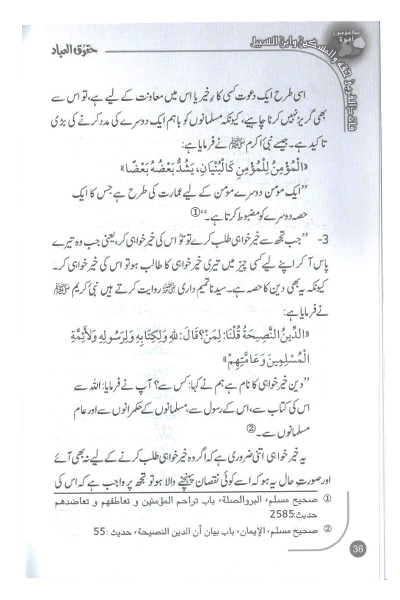 حقوق العباد
فآت ذا القربىٰ حقه والمسكين وابن السبيل
اسی طرح ایک دعوت کسی کارِ خیر یا اس میں معاونت کے لیے ہے، تو اس سے
بھی گریز نہیں کرنا چاہیے، کیونکہ مسلمانوں کو باہم ایک دوسرے کی مدد کرنے کی بڑی
تاکید ہے۔ جیسے نبیِ اکرم ﷺ نے فرمایا ہے:
«الْمُؤْمِنُ لِلْمُؤْمِنِ كَالْبُنْيَانِ، يَشُدُّ بَعْضُهُ بَعْضًا»
’’ایک مومن دوسرے مومن کے لیے عمارت کی طرح ہے جس کا ایک
حصہ دوسرے کو مضبوط کرتا ہے۔‘‘ ①
3- ’’جب تجھ سے خیر خواہی طلب کرے تو تُو اس کی خیر خواہی کر، یعنی جب وہ تیرے
پاس آ کر اپنے لیے کسی چیز میں تیری خیر خواہی کا طالب ہو تو اس کی خیر خواہی کر۔
کیونکہ یہ بھی دین کا حصہ ہے۔ سیدنا تمیم داری ؓ روایت کرتے ہیں نبیِ کریم ﷺ
نے فرمایا ہے:
«الدِّينُ النَّصِيحَةُ قُلْنَا: لِمَنْ؟ قَالَ: لِلّٰهِ وَلِكِتَابِهِ وَلِرَسُولِهِ وَلِأَئِمَّةِ
الْمُسْلِمِينَ وَعَامَّتِهِمْ»
’’دین خیر خواہی کا نام ہے ہم نے کہا: کس سے؟ آپ نے فرمایا: اللہ سے
اس کی کتاب سے، اس کے رسول سے، مسلمانوں کے حکمرانوں سے اور عام
مسلمانوں سے۔ ②
یہ خیر خواہی اتنی ضروری ہے کہ اگر وہ خیر خواہی طلب کرنے کے لیے نہ بھی آئے
اور صورتِ حال یہ ہو کہ اسے کوئی نقصان پہنچنے والا ہو تو تجھ پر واجب ہے کہ اس کی
① صحیح مسلم، البروالصلة، باب تراحم المؤمنین و تعاطفهم و تعاضدهم
حدیث:2585
② صحیح مسلم، الإیمان، باب بیان أن الدین النصیحة، حدیث: 55
36